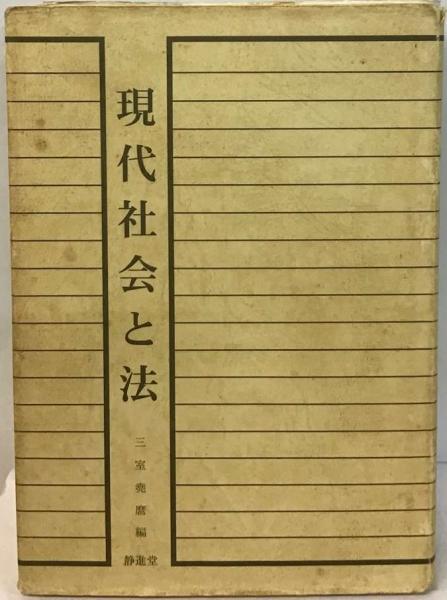 現代社会と法
三室堯麿編
静進堂